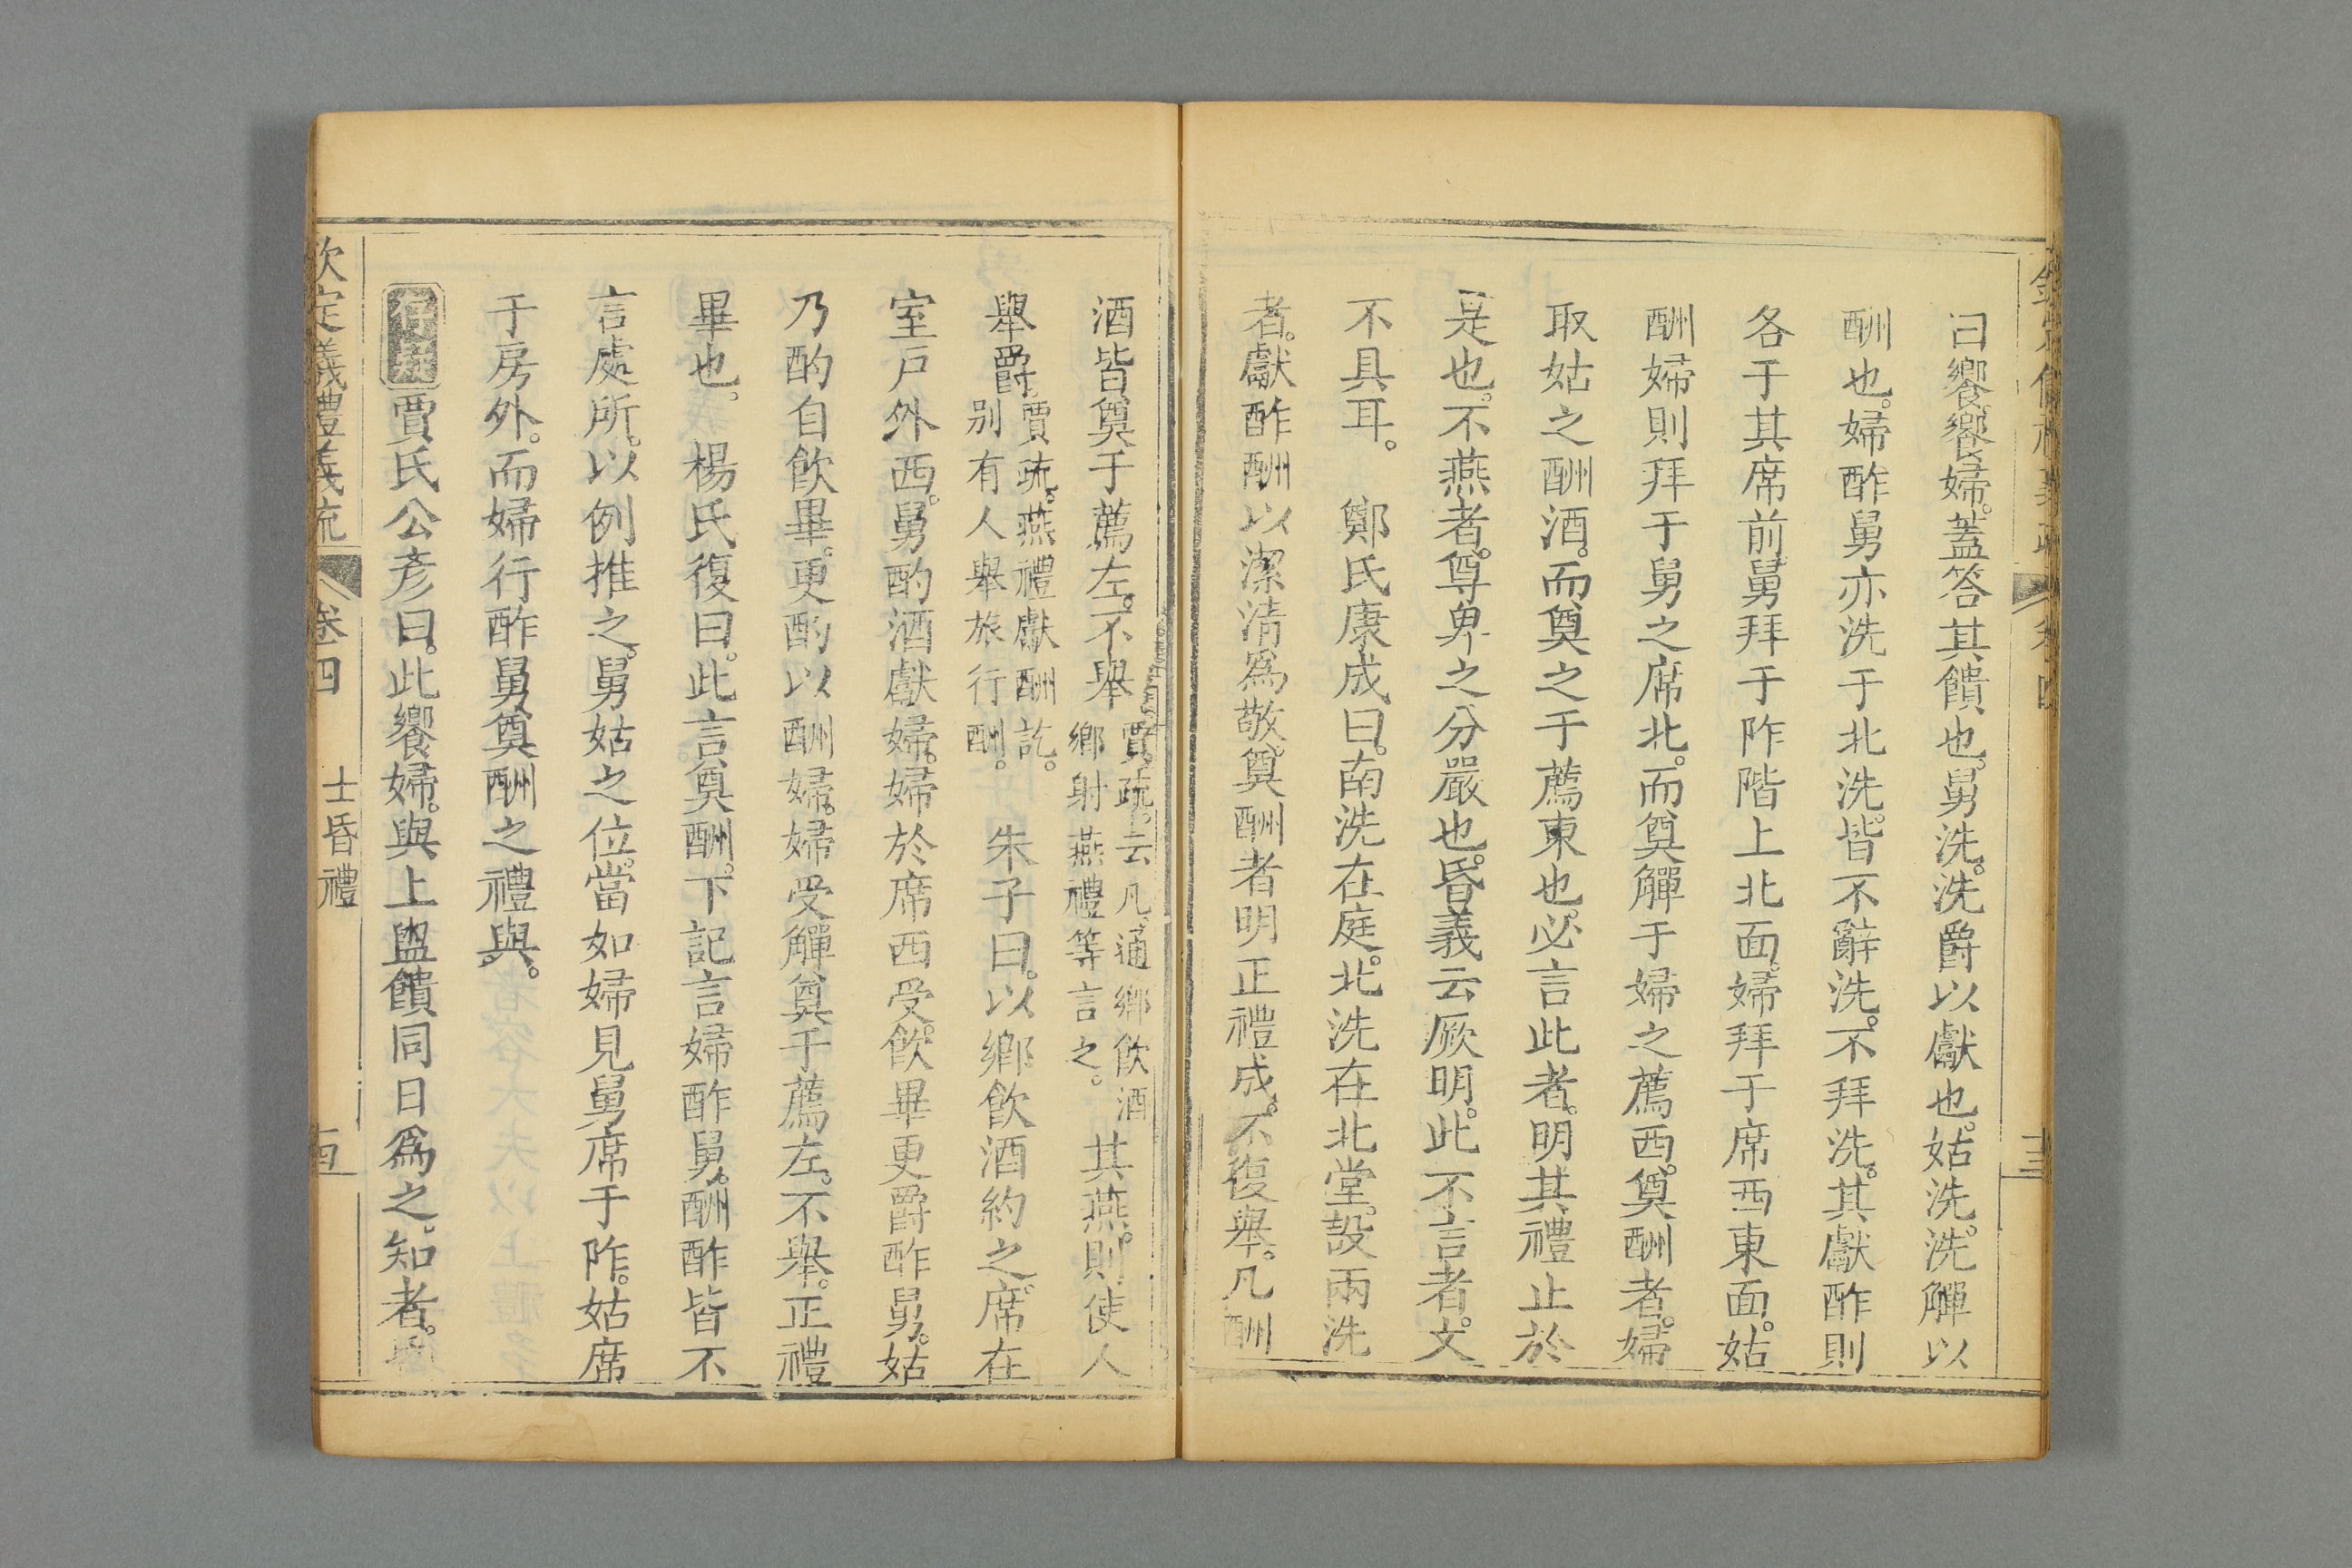 曰饗饗婦。蓋答其饋也。舅洗。洗爵以獻也。姑洗。洗觶以
酬也。婦酢舅亦洗于北洗。皆不辭洗。不拜洗。其獻酢則
各于其席前。舅拜于阼階上北面。婦拜于席西東面。姑
酬婦則拜于舅之席北。而奠觶于婦之薦西。奠酬者。婦
取姑之酬酒。而奠之于薦東也。必言此者。明其禮止於
是也。不燕者。尊卑之分嚴也。昏義云厥明。此不言者。文
不具耳。 鄭氏康成曰。南洗在庭。北洗在北堂。設兩洗
者。獻酢酬以潔淸爲敬。奠酬者明正禮成。不復舉。凡酬
酒皆奠于薦左。不舉賈疏。云凡通鄉飲酒鄉射燕禮等言之。其燕。則使人
舉爵。賈疏。燕禮獻酬訖。别有人舉旅行酬。 朱子曰。以鄉飲酒約之。席在
室戸外西。舅酌酒獻婦。婦於席西受。飲畢更爵酢舅。姑
乃酌自飲畢。更酌以酬婦。婦受觶奠于薦左。不舉。正禮
畢也。 楊氏復曰。此言奠酬。下記言婦酢舅。酬酢皆不
言處所。以例推之。舅姑之位。當如婦見舅席于阼。姑席
于房外。而婦行酢舅奠酬之禮與。
存疑賈氏公彥曰。此饗婦。與上盥饋同日爲之。知者。
欽定儀禮義疏 卷四 士昏禮